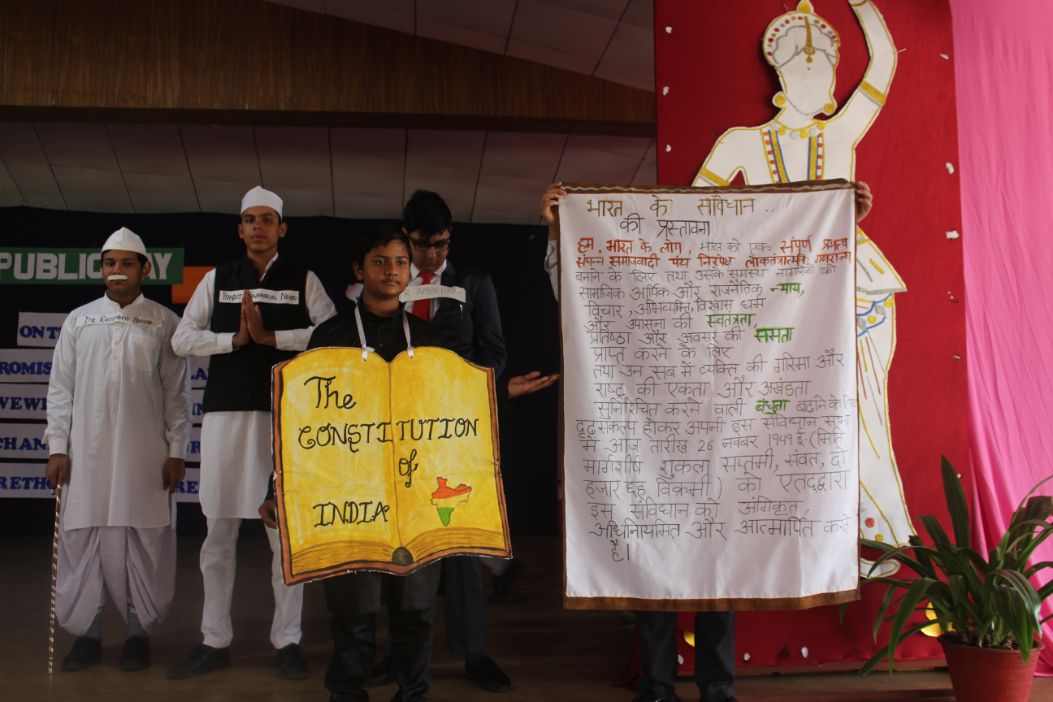 PUBLIC AY
ON T
PROMIS
WEWE
CHAN
RETHO
Dr Rajendra Prasad
Pandit Jawaharlal Nehru
R AMBEDKAR
The
CONSTITUTION
of
INDIA
भारत के संविधान ..
की प्रस्तावना
हम, भारत के लोग, भारत को एक संपूर्ण प्रभुत्व
संपन्न समाजवादी पंथ निरपेक्ष लोकतंत्रात्मक गणराज्य
बनाने के लिए तथा उसके समस्त नागरिकों को
सामाजिक आर्थिक और राजनैतिक न्याय,
विचार, अभिव्यक्ति, विश्वास धर्म
और उपासना की स्वतंत्रता
प्रतिष्ठा और अवसर की समता
प्राप्त करने के लिए
तथा उन सब में व्यक्ति की गरिमा और
राष्ट्र की एकता और अखंडता
सुनिश्चित करने वाली बंधुता बढाने के लिए
दृढ़संकल्प होकर अपनी इस संविधान सभा
में आज तारीख 26 नवंबर 1949 ई. (मिति
मार्गशीर्ष शुक्ला सप्तमी, संवत, दो
हजार छह विक्रमी) को एतद्द्वारा
इस संविधान को अंगिकृत
अधिनियमित और आत्मार्पित करते
हैं।